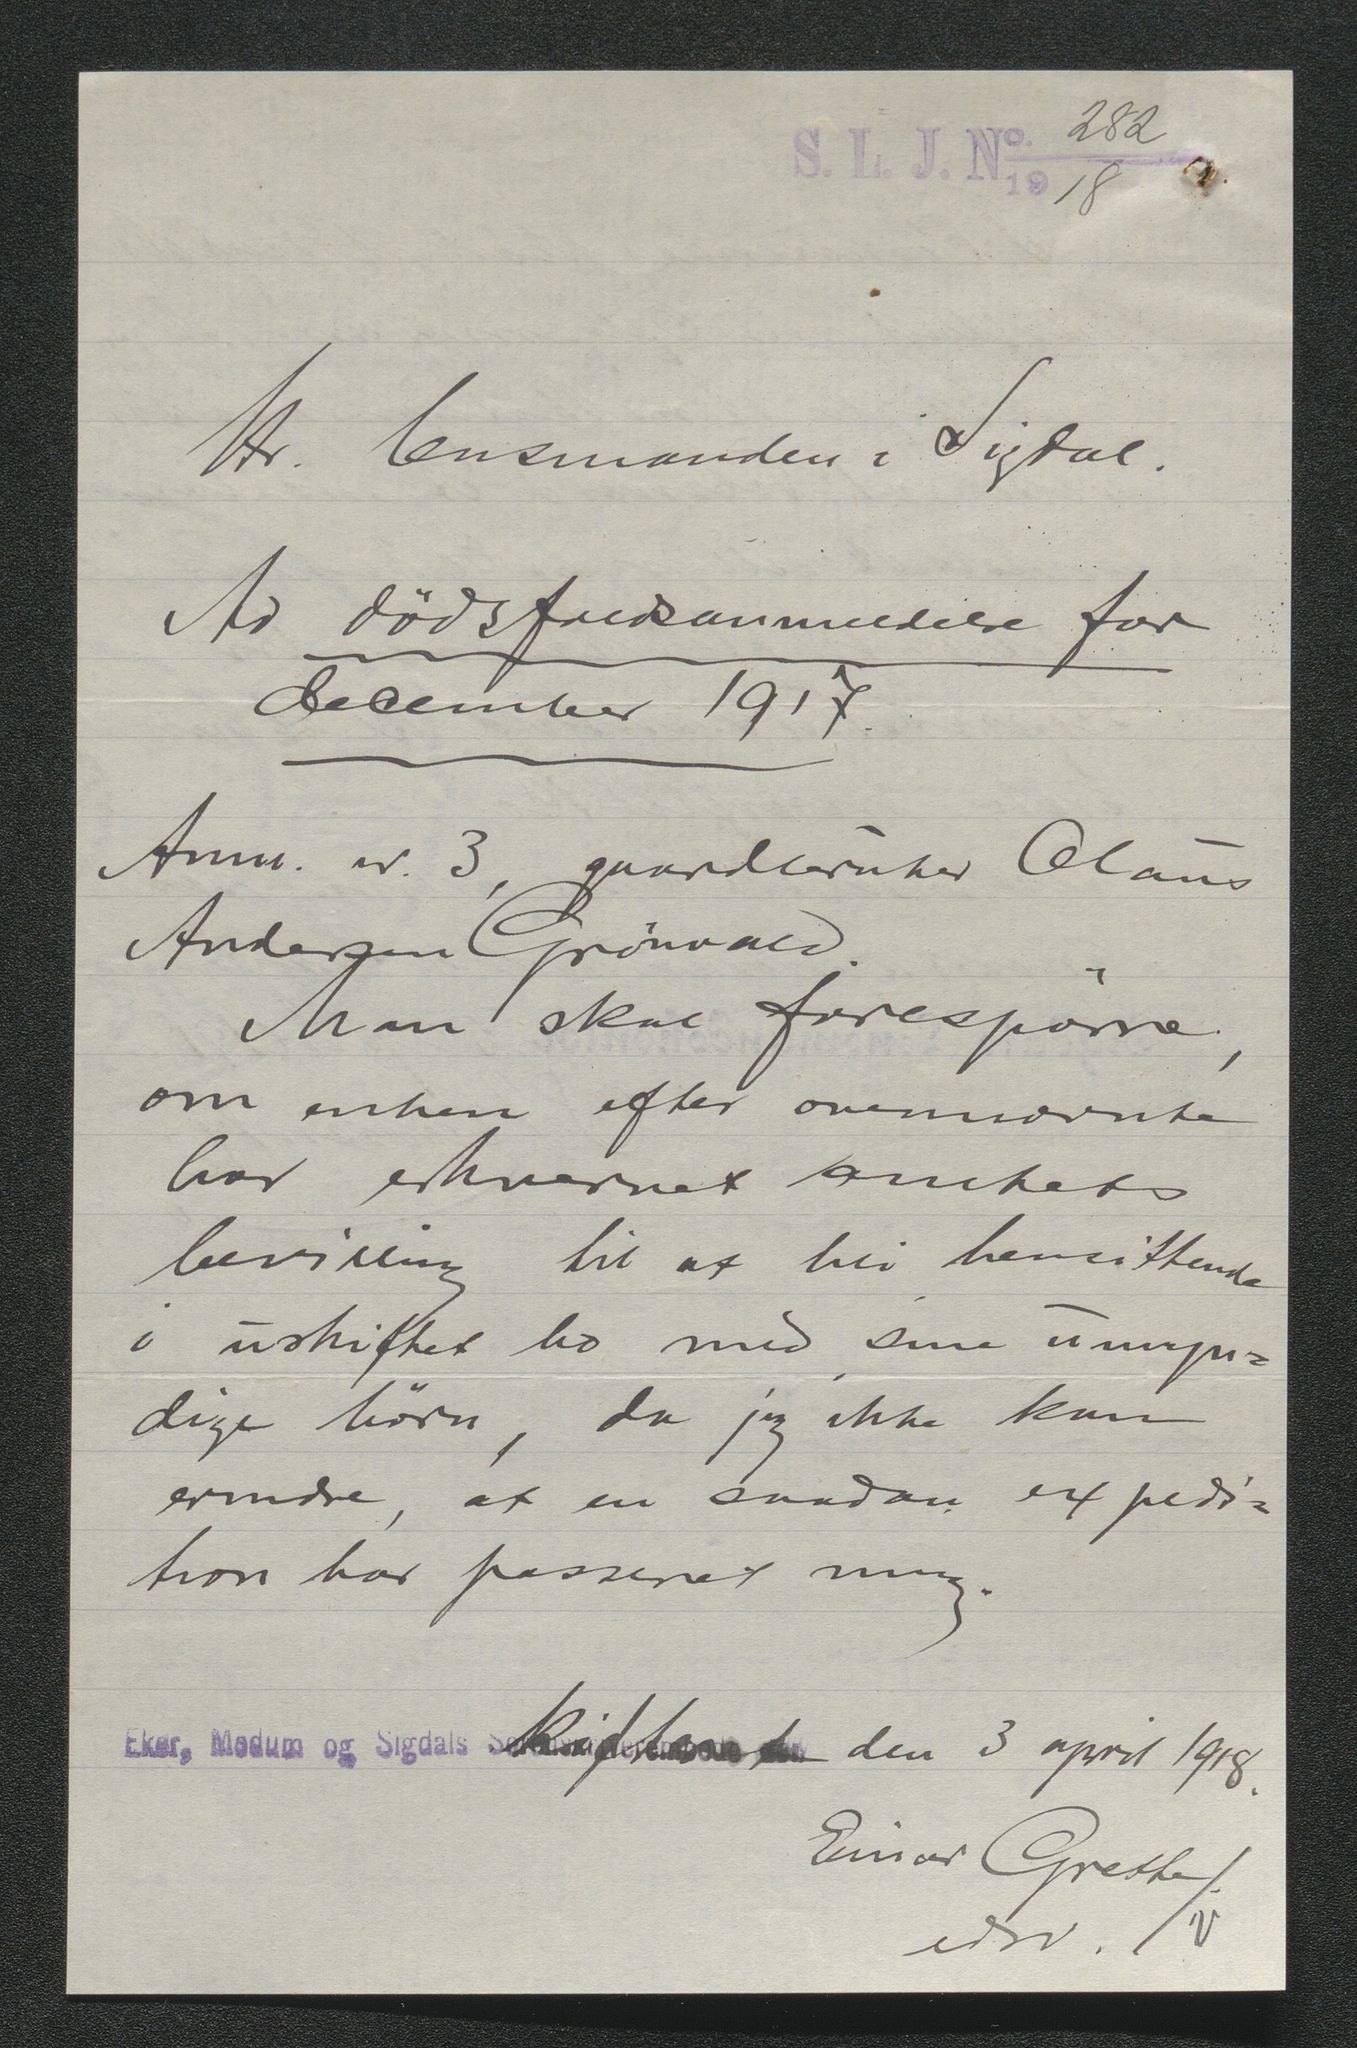 S. L. J. No. 282
19 18
Hr. lensmanden i Sigdal.
Ad dödsfaldsanmeldelse for
december 1917.
Anm. nr. 3, gaardbruker Olaus
Andersen Grönvold.
Man skal forespörre,
om enken efter ovennævnte
har erhvervet amtets
bevilling til at bli hensittende
i uskiftet bo med sine umyn=
dige börn, da jeg ikke kan
erindre, at en saadan expedi=
tion har passeret mig.
Eker, Modum og Sigdals Sorenskriverembede den 3 april 1918.
Einar Grette
edsv.